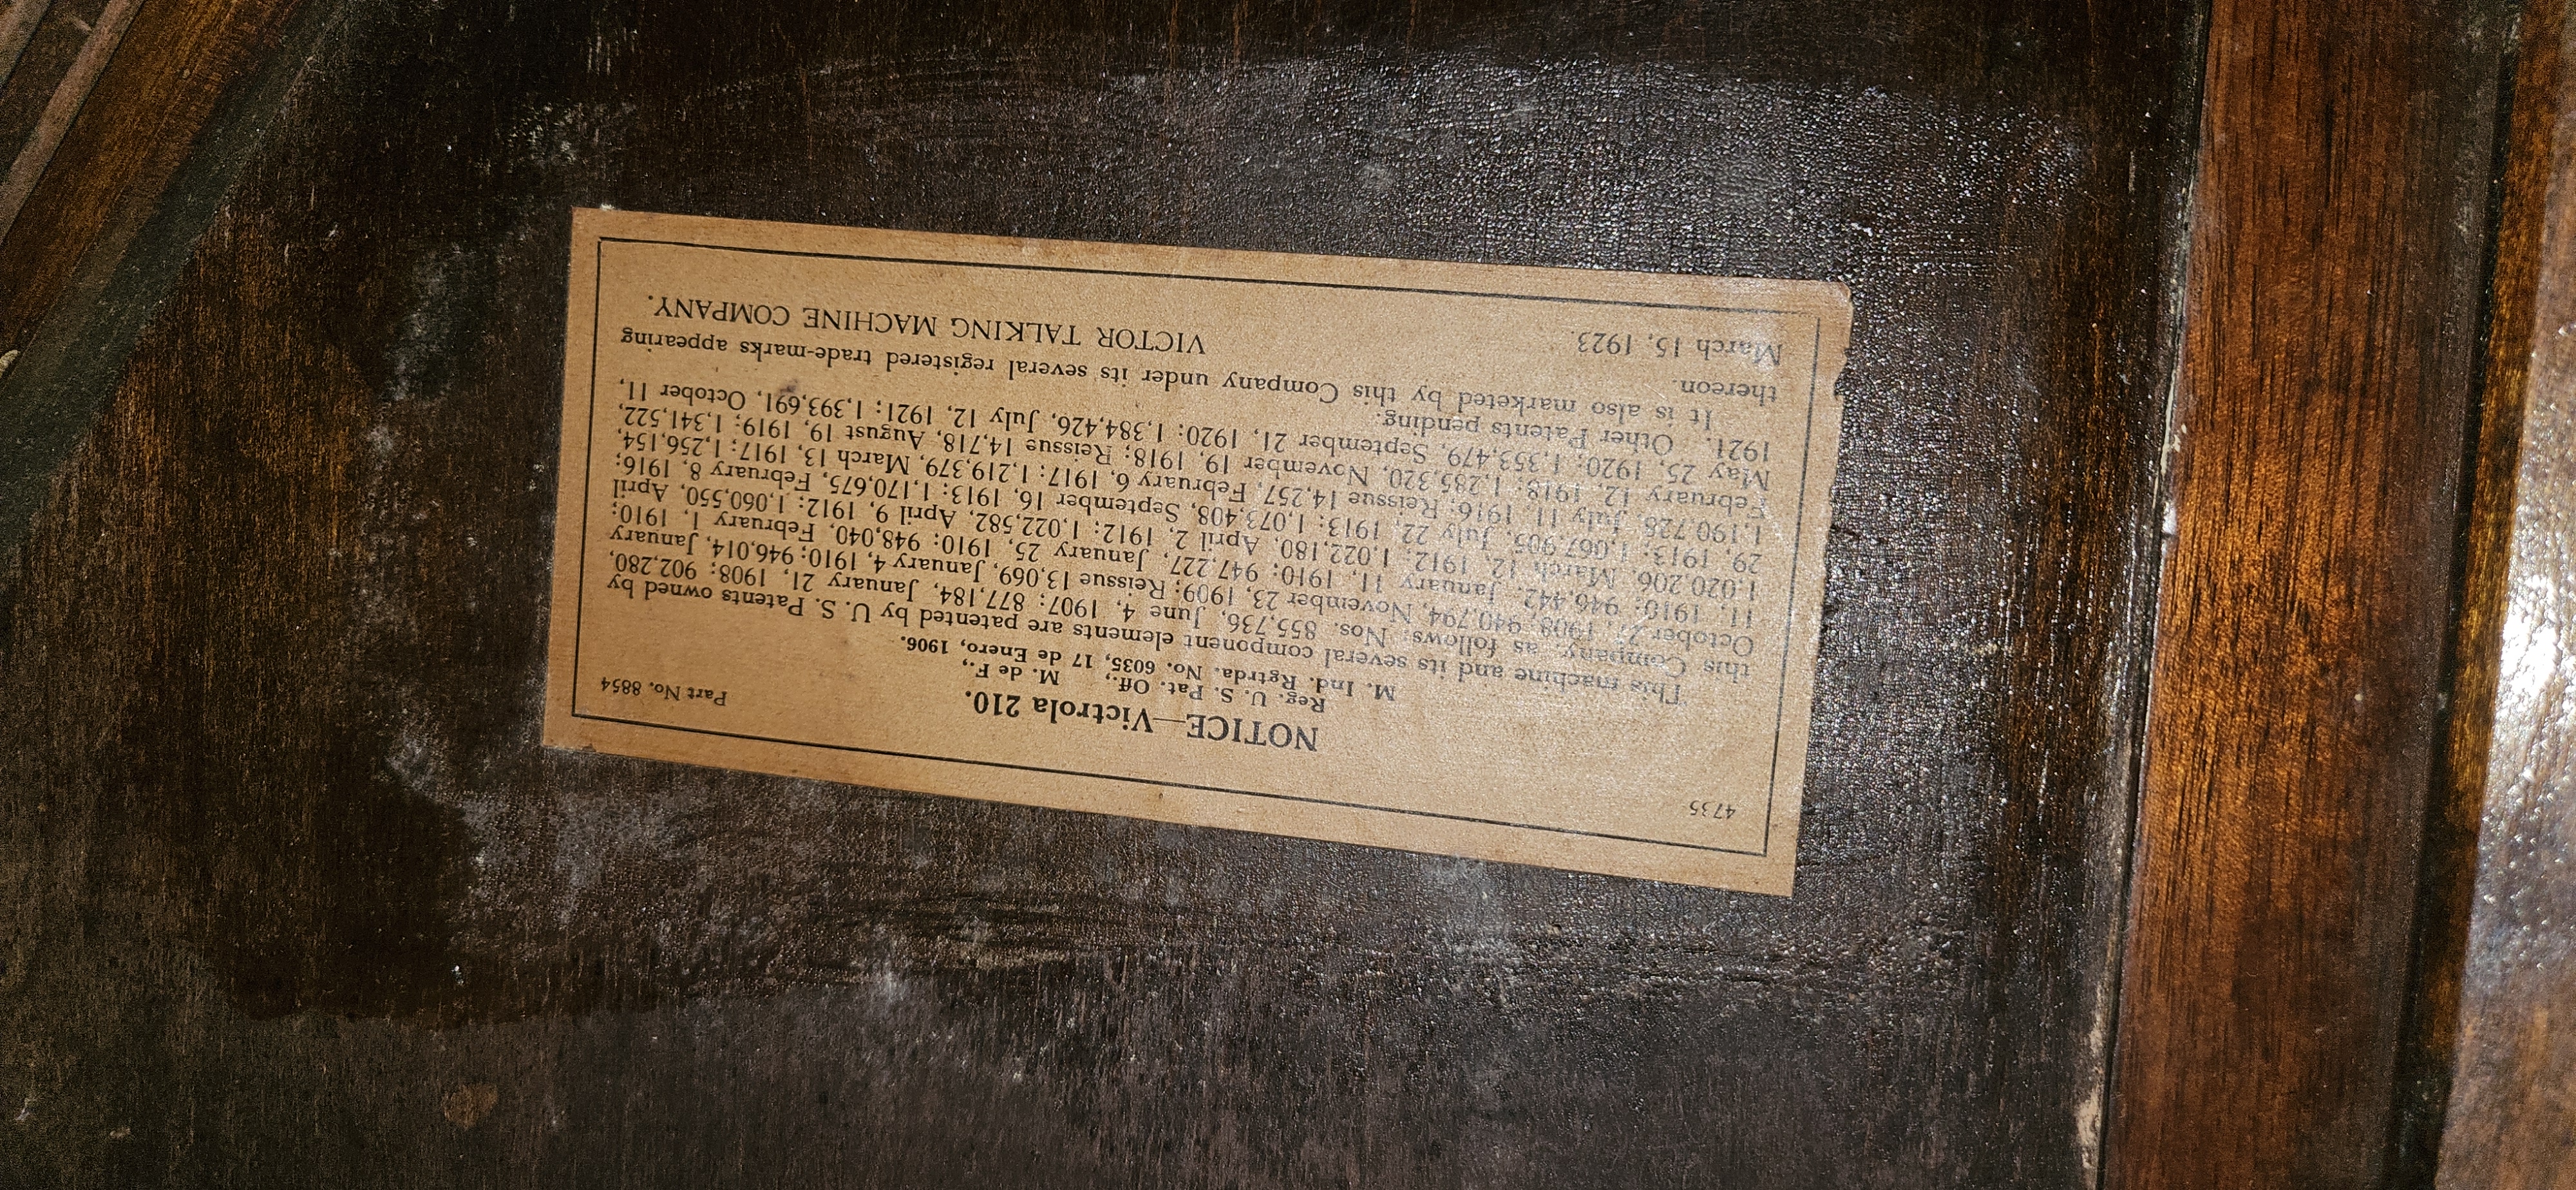 4735
NOTICE—Victrola 210.
Part No. 8854
Reg. U. S. Pat. Off., M. de F.,
M. Ind. Rgtrda. No. 6035, 17 de Enero, 1906.
This machine and its several component elements are patented by U. S. Patents owned by
this Company, as follows: Nos. 855,736, June 4, 1907; 877,184, January 21, 1908; 902,280,
October 27, 1908; 940,794, November 23, 1909; Reissue 13,069, January 4, 1910; 946,014, January
11, 1910; 946,442, January 11, 1910; 947,227, January 25, 1910; 948,040, February 1, 1910;
1,020,206, March 12, 1912; 1,022,180, April 2, 1912; 1,022,582, April 9, 1912; 1,060,550, April
29, 1913; 1,067,905, July 22, 1913; 1,073,408, September 16, 1913; 1,170,675, February 8, 1916;
1,190,728, July 11, 1916; Reissue 14,257, February 6, 1917; 1,219,379, March 13, 1917; 1,256,154,
February 12, 1918; 1,285,320, November 19, 1918; Reissue 14,718, August 19, 1919; 1,341,522,
May 25, 1920; 1,353,479, September 21, 1920; 1,384,426, July 12, 1921; 1,393,691, October 11,
1921. Other Patents pending.
It is also marketed by this Company under its several registered trade-marks appearing
thereon.
March 15, 1923. VICTOR TALKING MACHINE COMPANY.